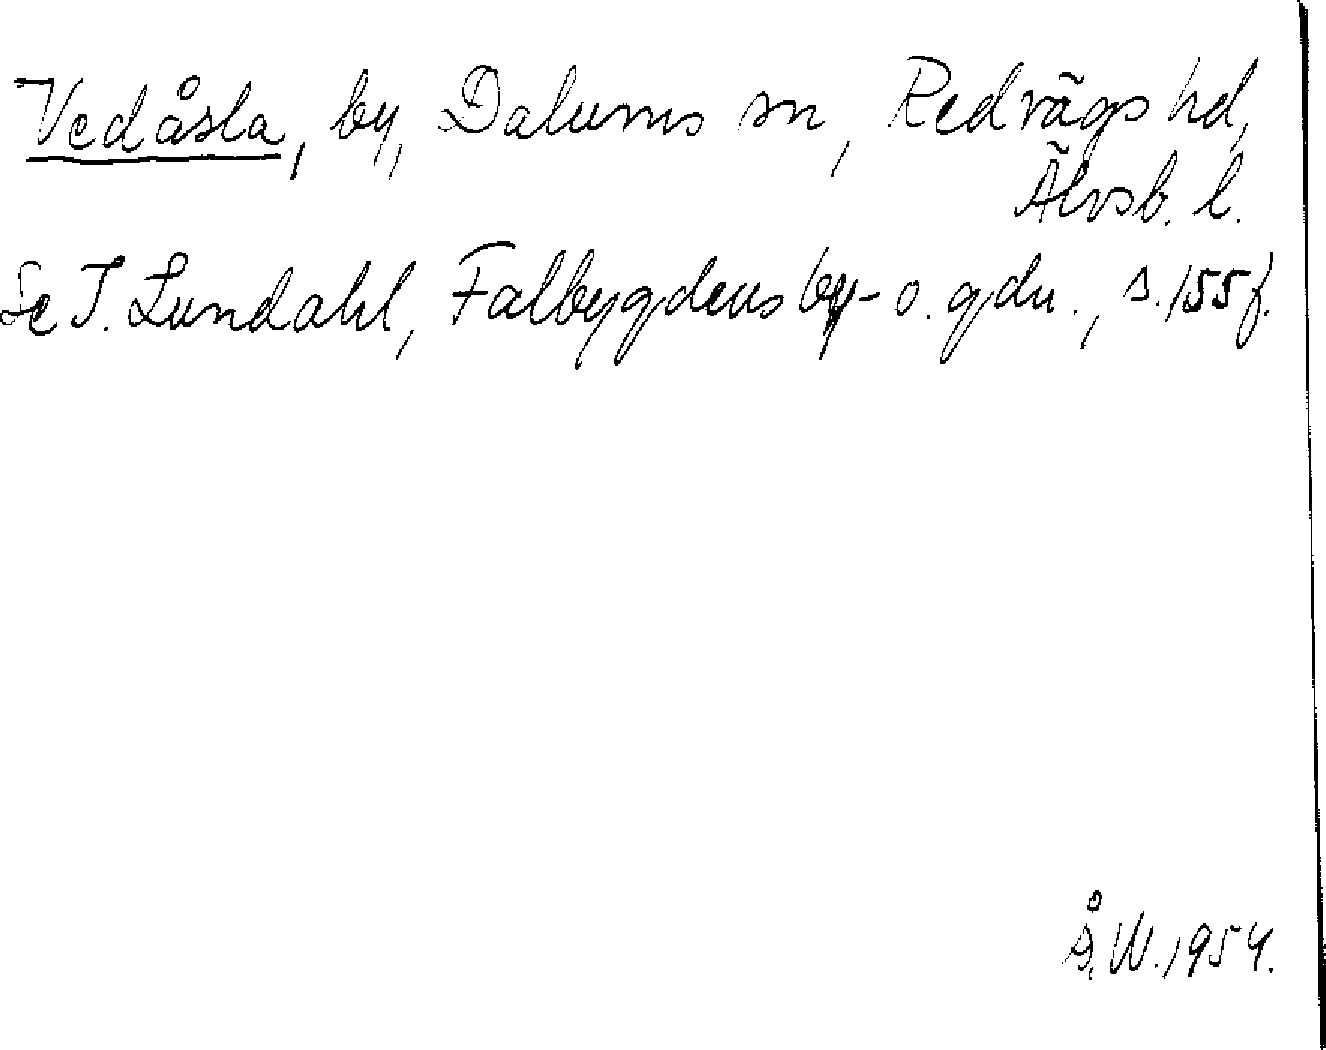 Vedåsla, by, Dalums sn, Redvägs hd,
Älvsb. l.
Se I. Lundahl, Falbygdens by- o. gdn., s. 155 f.
Å. W. 1954.